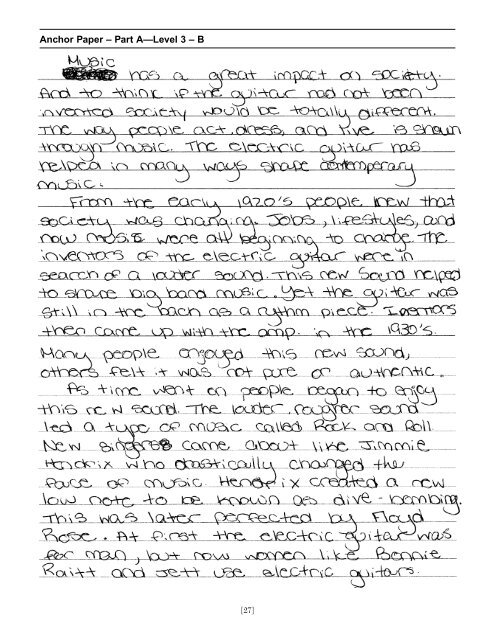 Anchor Paper – Part A—Level 3 – B
Music
has a great impact on society.
And to think if the guitar had not been
invented society would be totally different.
The way people act, dress, and live is shown
through music. The electric guitar has
helped in many ways shape contemporary
music.
From the early 1920's people knew that
society was changing. Jobs, lifestyles, and
now music were all beginning to change. The
inventors of the electric guitar were in
search of a louder sound. This new sound helped
to shape big band music. Yet the guitar was
still in the back as a rythm piece. Inventors
then came up with the amp. in the 1930's.
Many people enjoyed this new sound,
others felt it was not pure or authentic.
As time went on people began to enjoy
this new sound. The louder, rougher sound
led a type of music called Rock and Roll.
New singers came about like Jimmie
Hendrix who drastically changed the
face of music. Hendrix created a new
low note to be known as dive-bombing.
This was later perfected by Floyd
Rose. At first the electric guitar was
for man, but now women like Bonnie
Raitt and Jett use electric guitars.
[27]